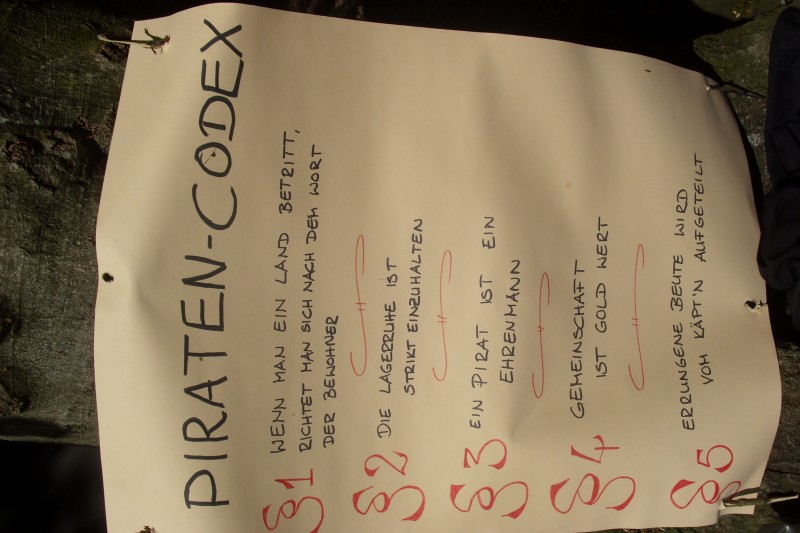 PIRATEN-CODEX
§1 WENN MAN EIN LAND BETRITT,
RICHTET MAN SICH NACH DEM WORT
DER BEWOHNER
§2 DIE LAGERRUHE IST
STRIKT EINZUHALTEN
§3 EIN PIRAT IST EIN
EHRENMANN
§4 GEMEINSCHAFT
IST GOLD WERT
§5 ERRUNGENE BEUTE WIRD
VOM KÄPT'N AUFGETEILT